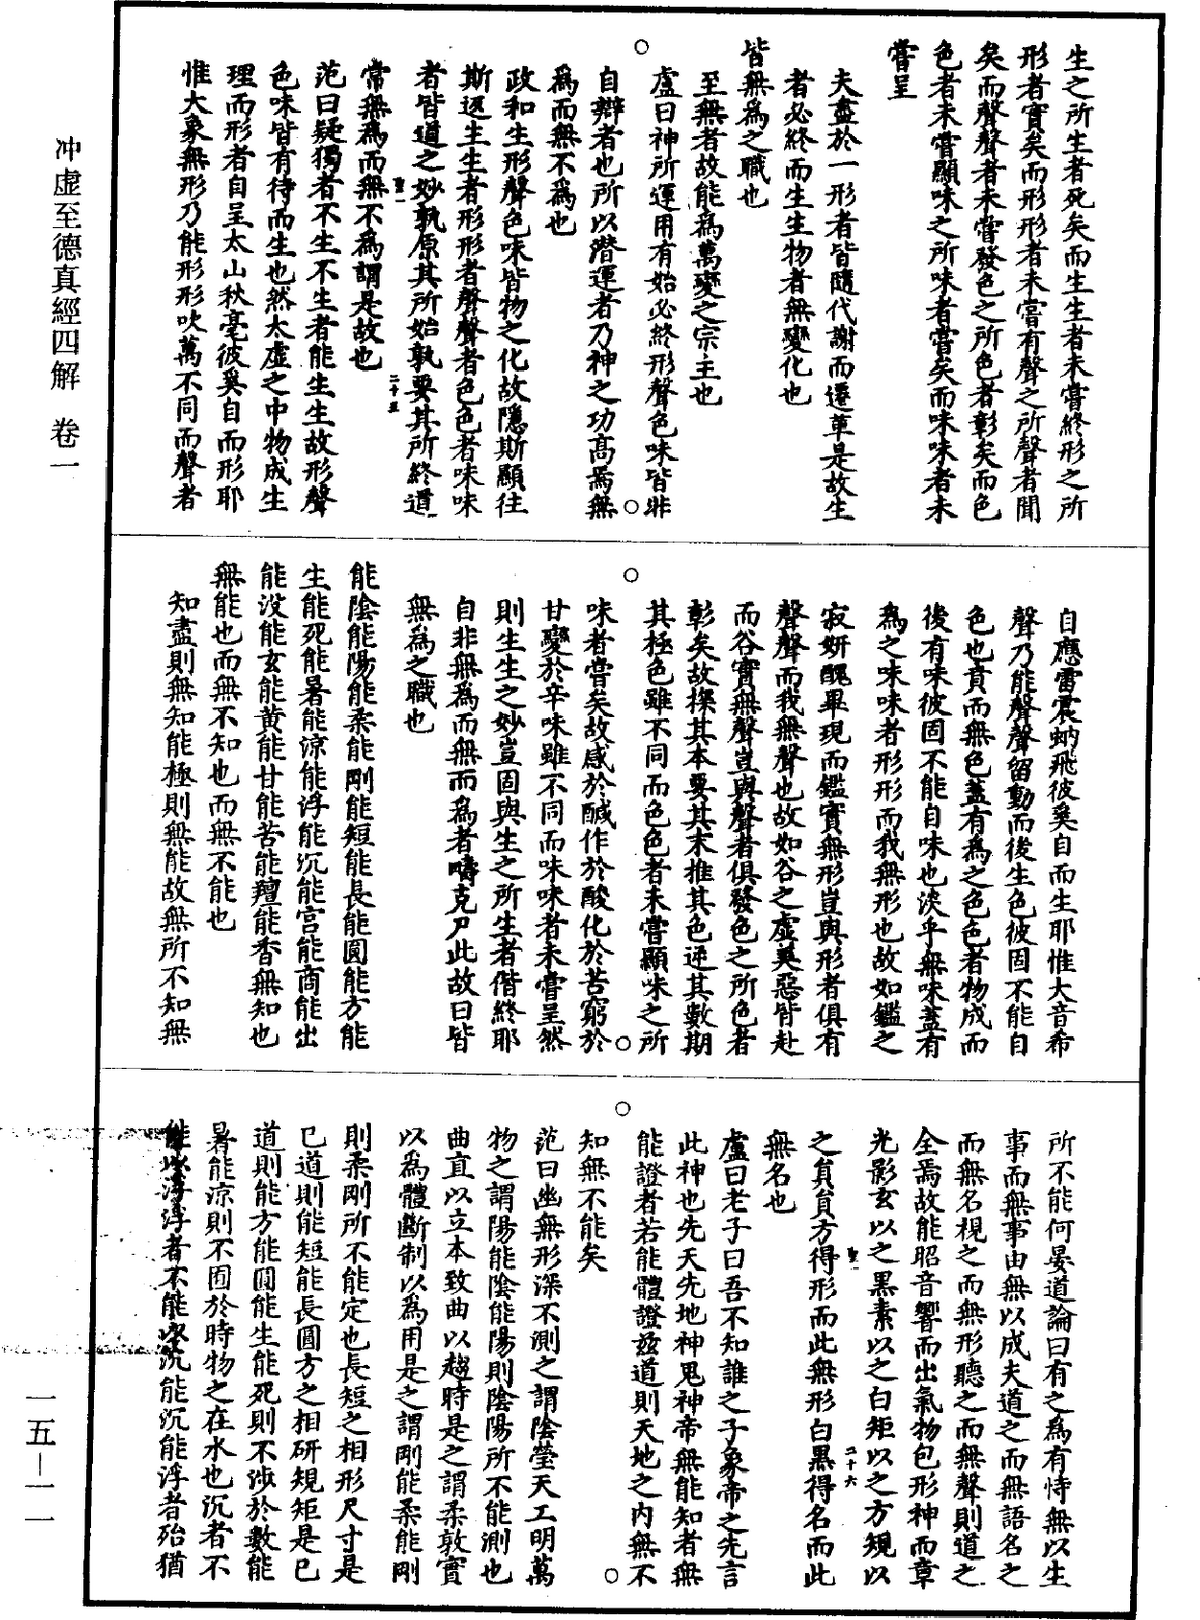 生之所生者死矣而生生者未嘗終形之所
形者實矣而形形者未嘗有聲之所聲者聞
矣而聲聲者未嘗發色之所色者彰矣而色
色者未嘗顯味之所味者嘗矣而味味者未
嘗呈
夫盡於一形者皆隨代謝而遷革是故生
者必終而生生物者無變化也
皆無為之職也
至無者故能為萬變之宗主也
盧曰神所運用有始必終形聲色味皆非
自辯者也所以潛運者乃神之功高焉無
為而無不為也
政和生形聲色味皆物之化故隱斯顯往
斯返生生者形形者聲聲者色色者味味
者皆道之妙孰原其所始孰要其所終道
常無為而無不為謂是故也
聖一
二十五
范曰疑獨者不生不生者能生生故形聲
色味皆有待而生也然太虛之中物成生
理而形者自呈太山秋毫彼奚自而形耶
惟大象無形乃能形形吹萬不同而聲者
自應雷震蚋飛彼奚自而生耶惟大音希
聲乃能聲聲留動而後生色彼固不能自
色也賁而無色蓋有為之色色者物成而
後有味彼固不能自味也淡乎無味蓋有
為之味味者形形而我無形也故如鑑之
寂妍醜畢現而鑑實無形豈與形者俱有
聲聲而我無聲也故如谷之虛美惡皆赴
而谷實無聲豈與聲者俱發色之所色者
彰矣故探其本要其末推其色逆其數期
其極色雖不同而色色者未嘗顯味之所
味者嘗矣故感於鹹作於酸化於苦窮於
甘變於辛味雖不同而味味者未嘗呈然
則生生之妙豈固與生之所生者偕終耶
自非無為而無而為者疇克尸此故曰皆
無為之職也
能陰能陽能柔能剛能短能長能圓能方能
生能死能暑能涼能浮能沉能宮能商能出
能沒能玄能黃能甘能苦能羶能香無知也
無能也而無不知也而無不能也
知盡則無知能極則無能故無所不知無
所不能何晏道論曰有之為有恃無以生
事而無事由無以成夫道之而無語名之
而無名視之而無形聽之而無聲則道之
全焉故能昭音響而出氣物包形神而章
光影玄以之黑素以之白矩以之方規以
之員員方得形而此無形白黑得名而此
聖一
二十六
無名也
盧曰老子曰吾不知誰之子象帝之先言
此神也先天先地神鬼神帝無能知者無
能證者若能體證茲道則天地之內無不
知無不能矣
范曰幽無形深不測之謂陰瑩天工明萬
物之謂陽能陰能陽則陰陽所不能測也
曲直以立本致曲以趨時是之謂柔敦實
以為體斷制以為用是之謂剛能柔能剛
則柔剛所不能定也長短之相形尺寸是
已道則能短能長圓方之相研規矩是已
道則能方能圓能生能死則不涉於數能
暑能涼則不囿於時物之在水也沉者不
能以浮浮者不能以沉能沉能浮者殆猶
冲虛至德真經四解 卷一
一五—一一